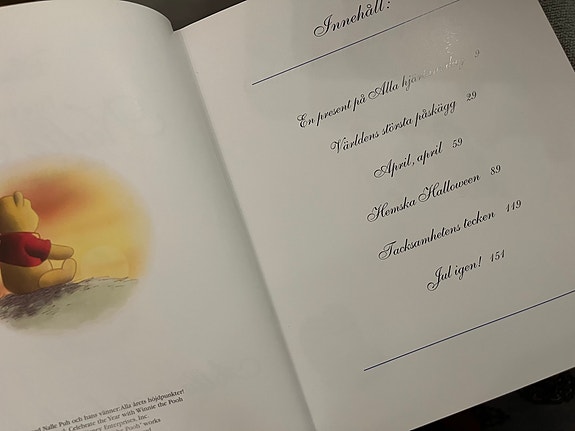 Nalle Puh och hans vänner: Alla årets höjdpunkter!
Celebrate the Year with Winnie the Pooh
Enterprises, Inc.
Pooh' works
Innehåll:
En present på Alla 9
Världens största påskägg 29
April, april 59
Hemska Halloween 89
Tacksamhetens tecken 119
Jul igen! 151